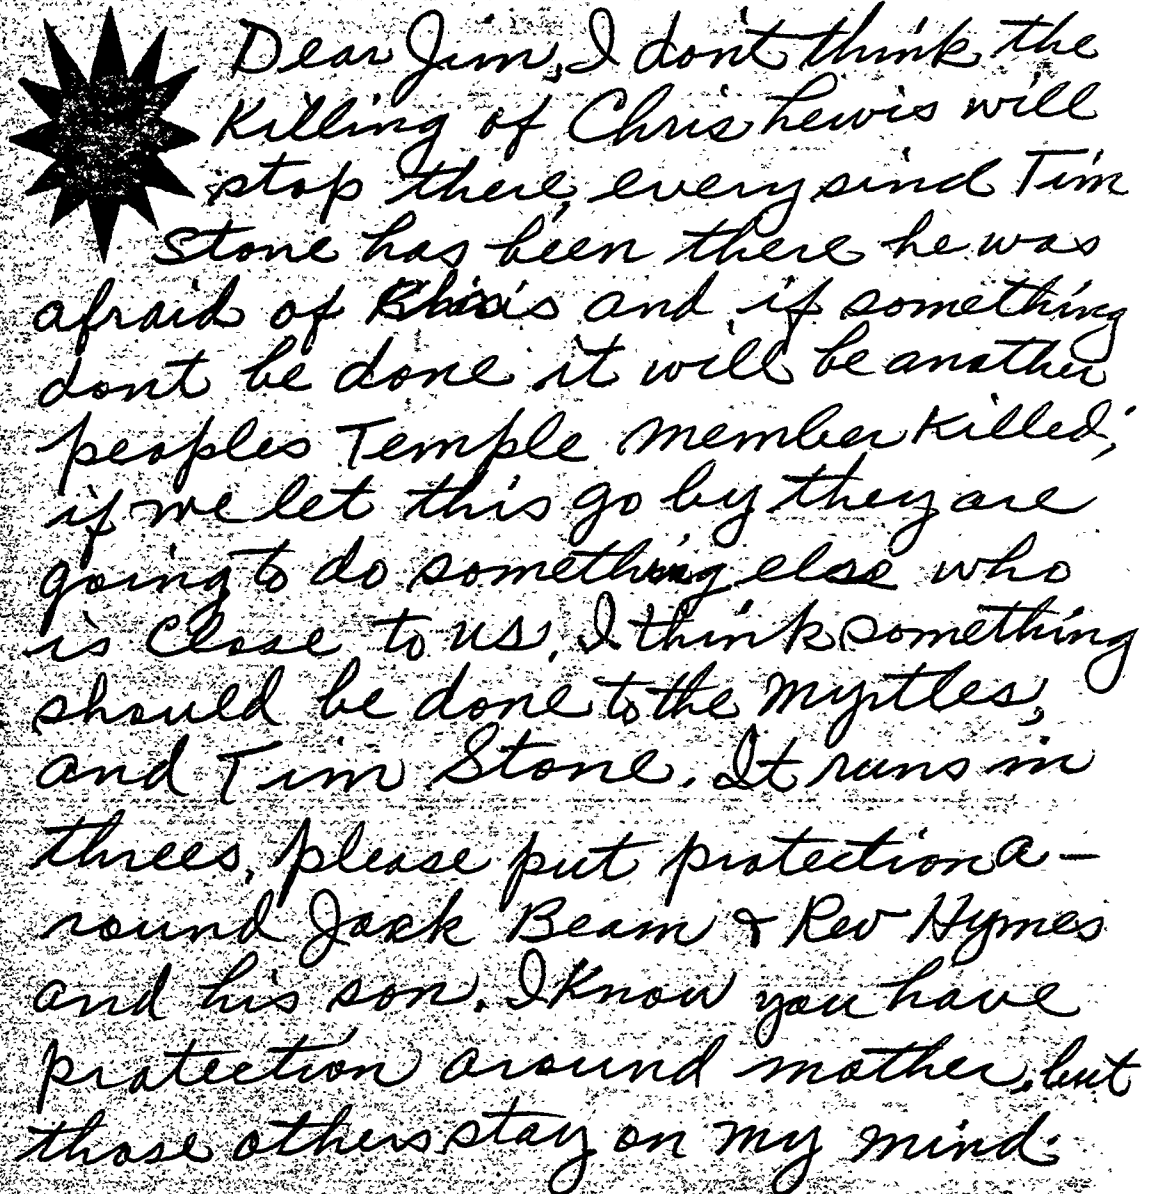 Dear Jim, I dont think the
Killing of Chris Lewis will
stop there, every sind Tim
Stone has been there he was
afraid of Chris and if something
dont be done it will be another
peoples Temple member Killed;
if we let this go by they are
going to do something else who
is Close to us. I think something
should be done to the Myrtles,
and Tim Stone. It runs in
threes, please put protection a-
round Jack Beam & Rev Hymes
and his son. I Know you have
protection around mother, but
those others stay on my mind.